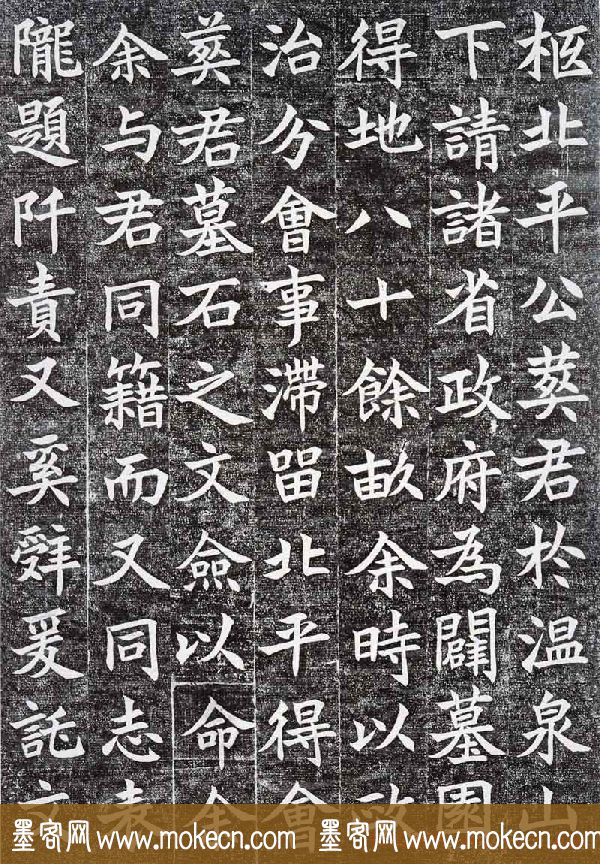 柩北平公葬君於温泉山
下請諸省政府為闢墓園
得地八十餘畝余時以政
治分會事滯留北平得會
葬君墓石之文僉以命余
余与君同籍而又同志表
隴題阡責又奚辤爰託
墨客网 www.mokecn.com 墨客网 www.mokecn.com